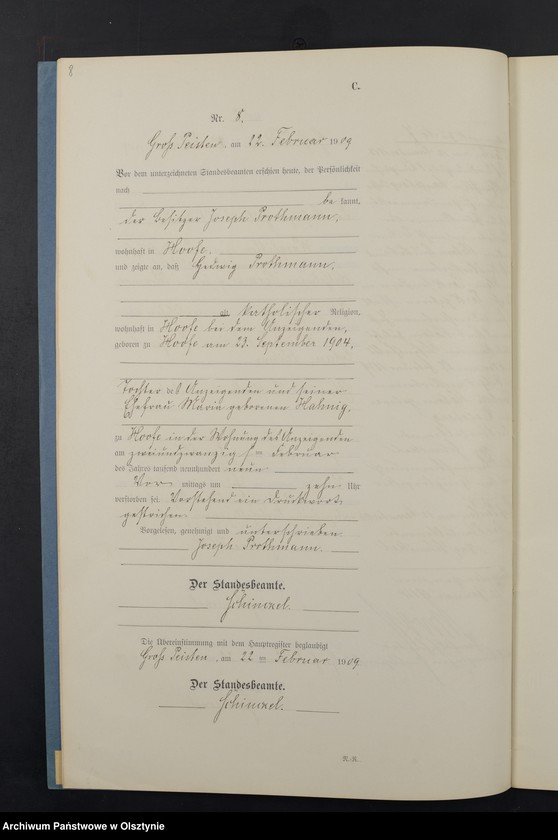 8
C.
Nr. 8.
Groß Peisten, am 22. Februar 1909
Vor dem unterzeichneten Standesbeamten erschien heute, der Persönlichkeit
nach
be kannt,
der Besitzer Joseph Prothmann,
wohnhaft in Hoofe.
und zeigte an, daß Hedwig Prothmann,
alt, katholischer Religion,
wohnhaft in Hoofe bei dem Anzeigenden,
geboren zu Hoofe am 23. September 1904,
Tochter des Anzeigenden und seiner
Ehefrau Maria geborenen Hahnig,
zu Hoofe in der Wohnung des Anzeigenden
am zweiundzwanzig ten Februar
des Jahres tausend neunhundert neun
Vor mittags um zehn Uhr
verstorben sei. Vorstehend ein Druckwort
gestrichen.
Vorgelesen, genehmigt und unterschrieben
Joseph Prothmann.
Der Standesbeamte.
Schimmel.
Die Übereinstimmung mit dem Hauptregister beglaubigt
Groß Peisten, am 22 ten Februar 1909
Der Standesbeamte.
Schimmel.
Archiwum Państwowe w Olsztynie